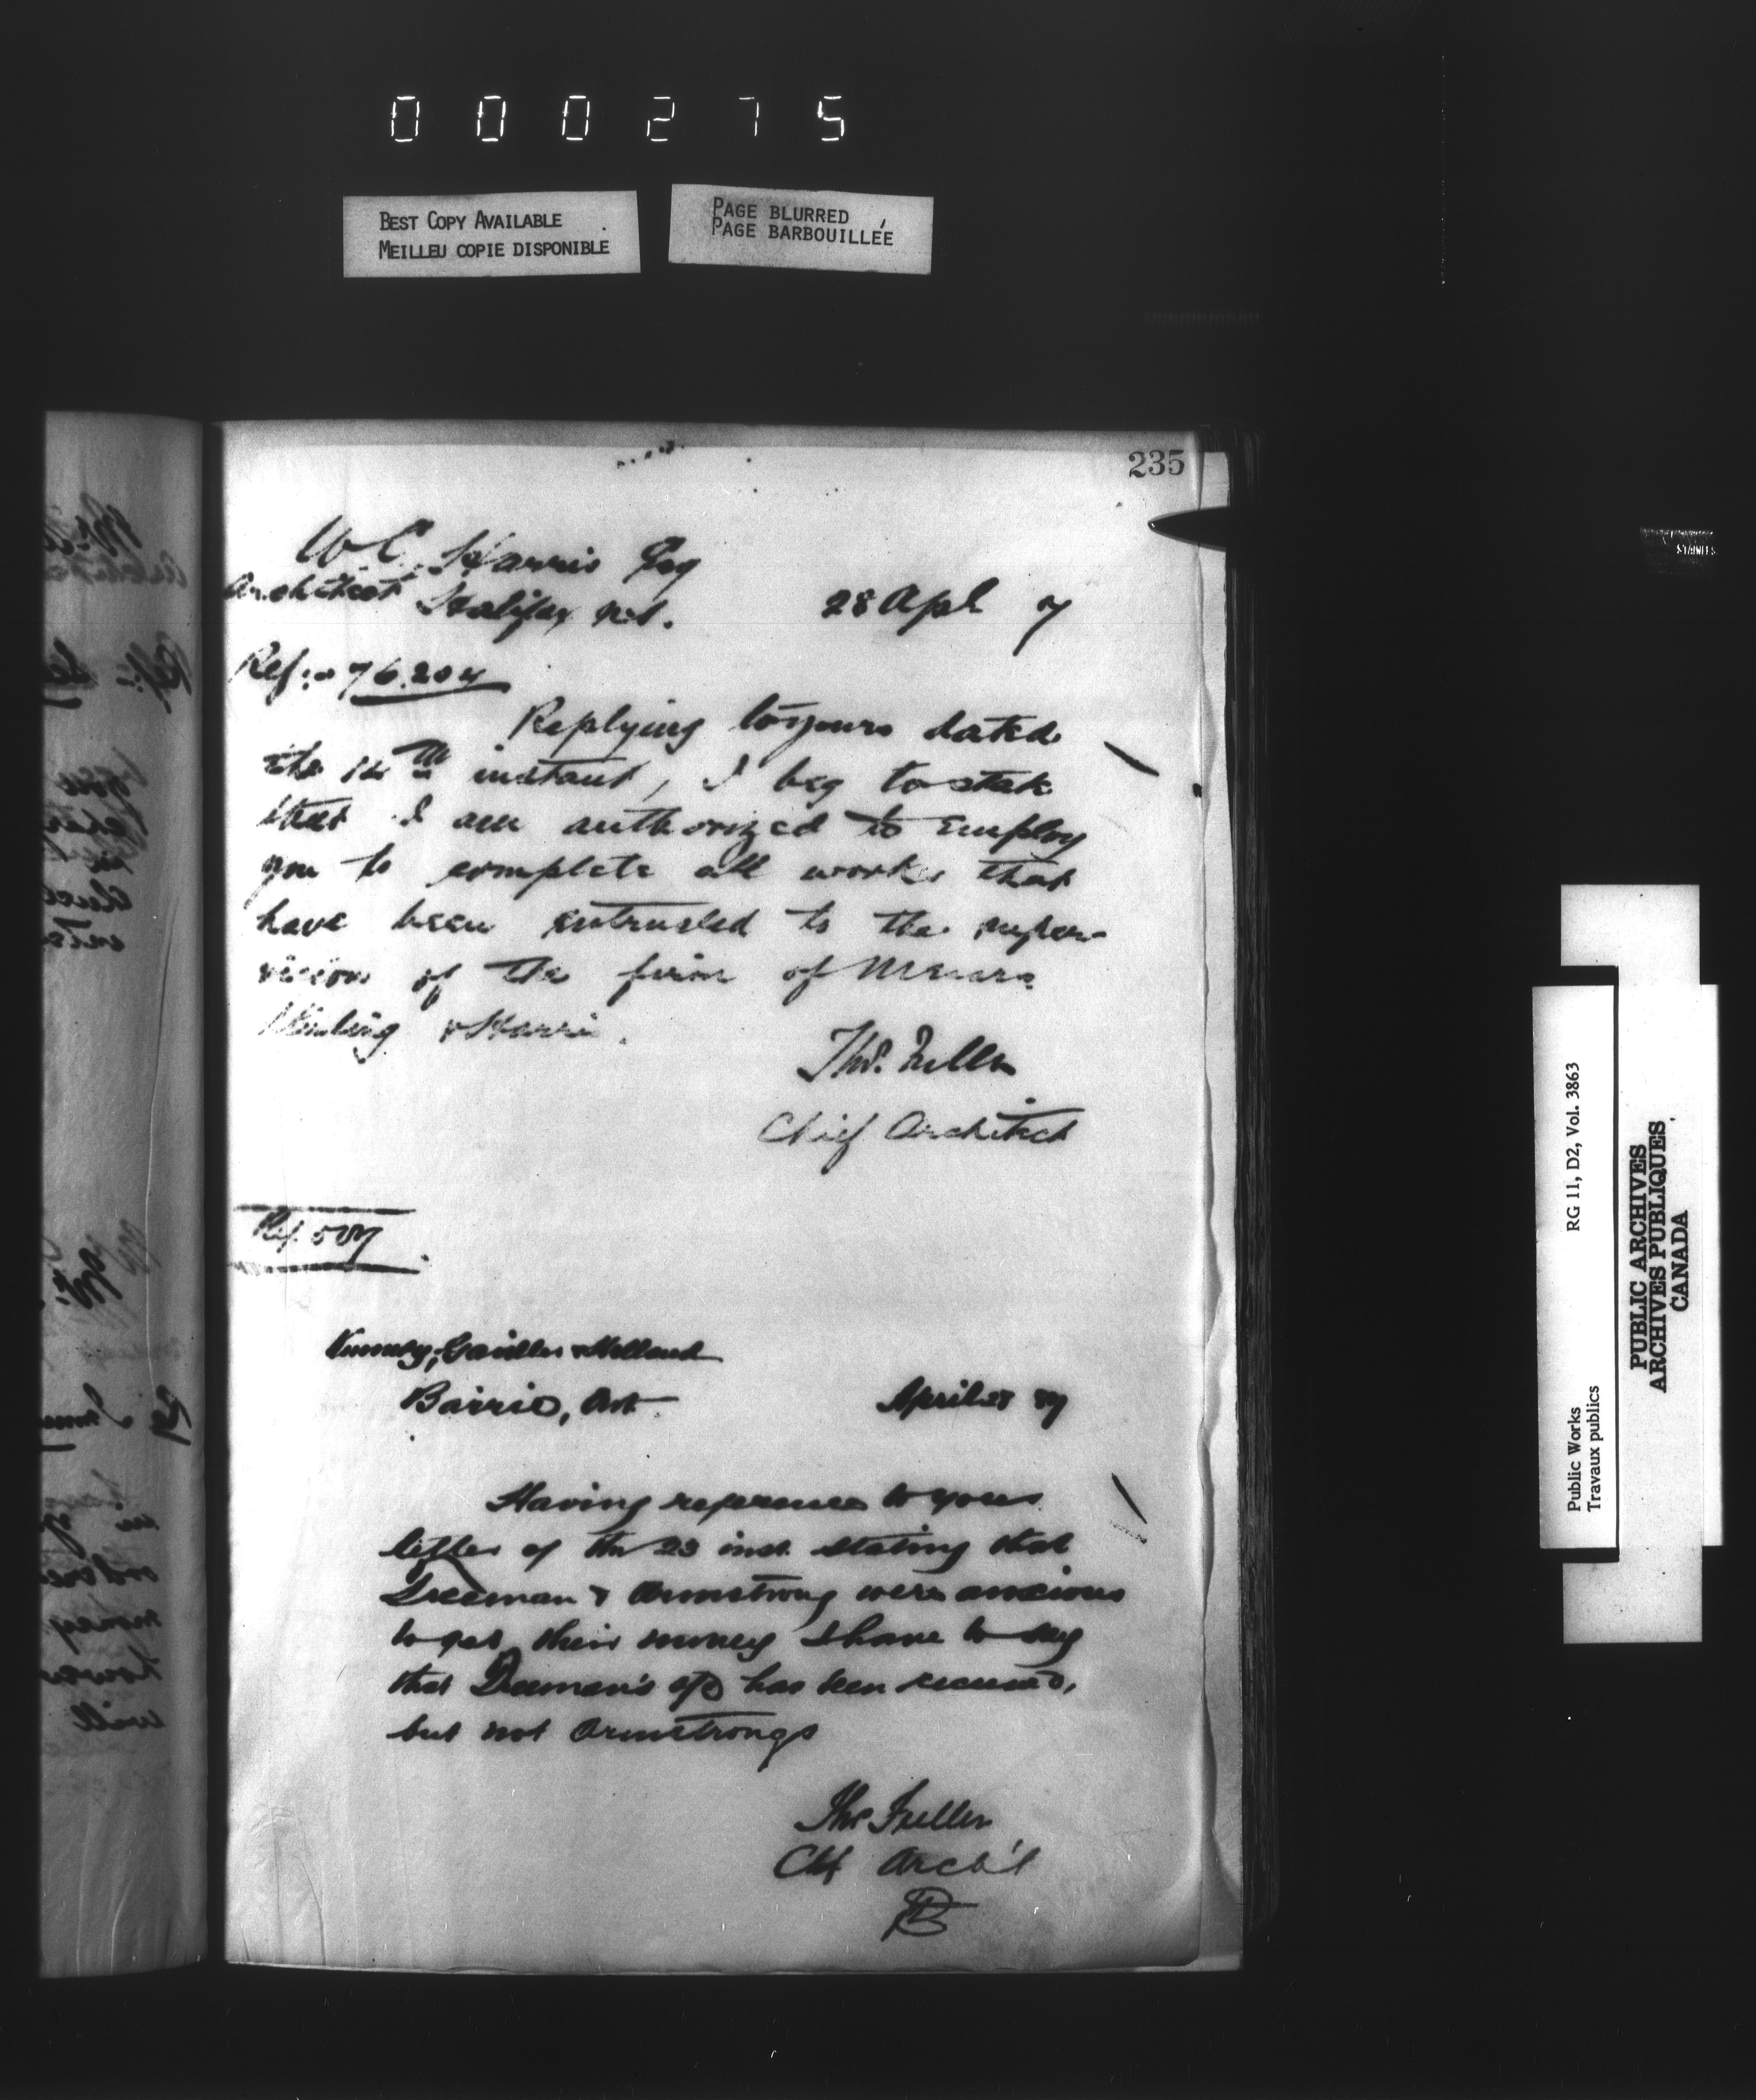 000275
BEST COPY AVAILABLE
MEILLEU COPIE DISPONIBLE
PAGE BLURRED
PAGE BARBOUILLÉE
235
W C Harris Esq
Architect Halifax N.S.
28 Apl 7
Ref: 76.204
Replying to yours dated
the 14th instant, I beg to state
that I am authorized to employ
you to complete all works that
have been entrusted to the super-
vision of the firm of Messrs
& Harris.
Thos. Fuller
Chief Architect
Ref. 587
Barrie, Ont.
April 28 87
Having reference to your
letter of the 23 inst. stating that
Freeman & Armstrong were anxious
to get their money I have to say
that Freeman's has been received,
but not Armstrongs
Thos Fuller
Chf Arch't
Public Works
Travaux publics
RG 11, D2, Vol. 3863
PUBLIC ARCHIVES
ARCHIVES PUBLIQUES
CANADA